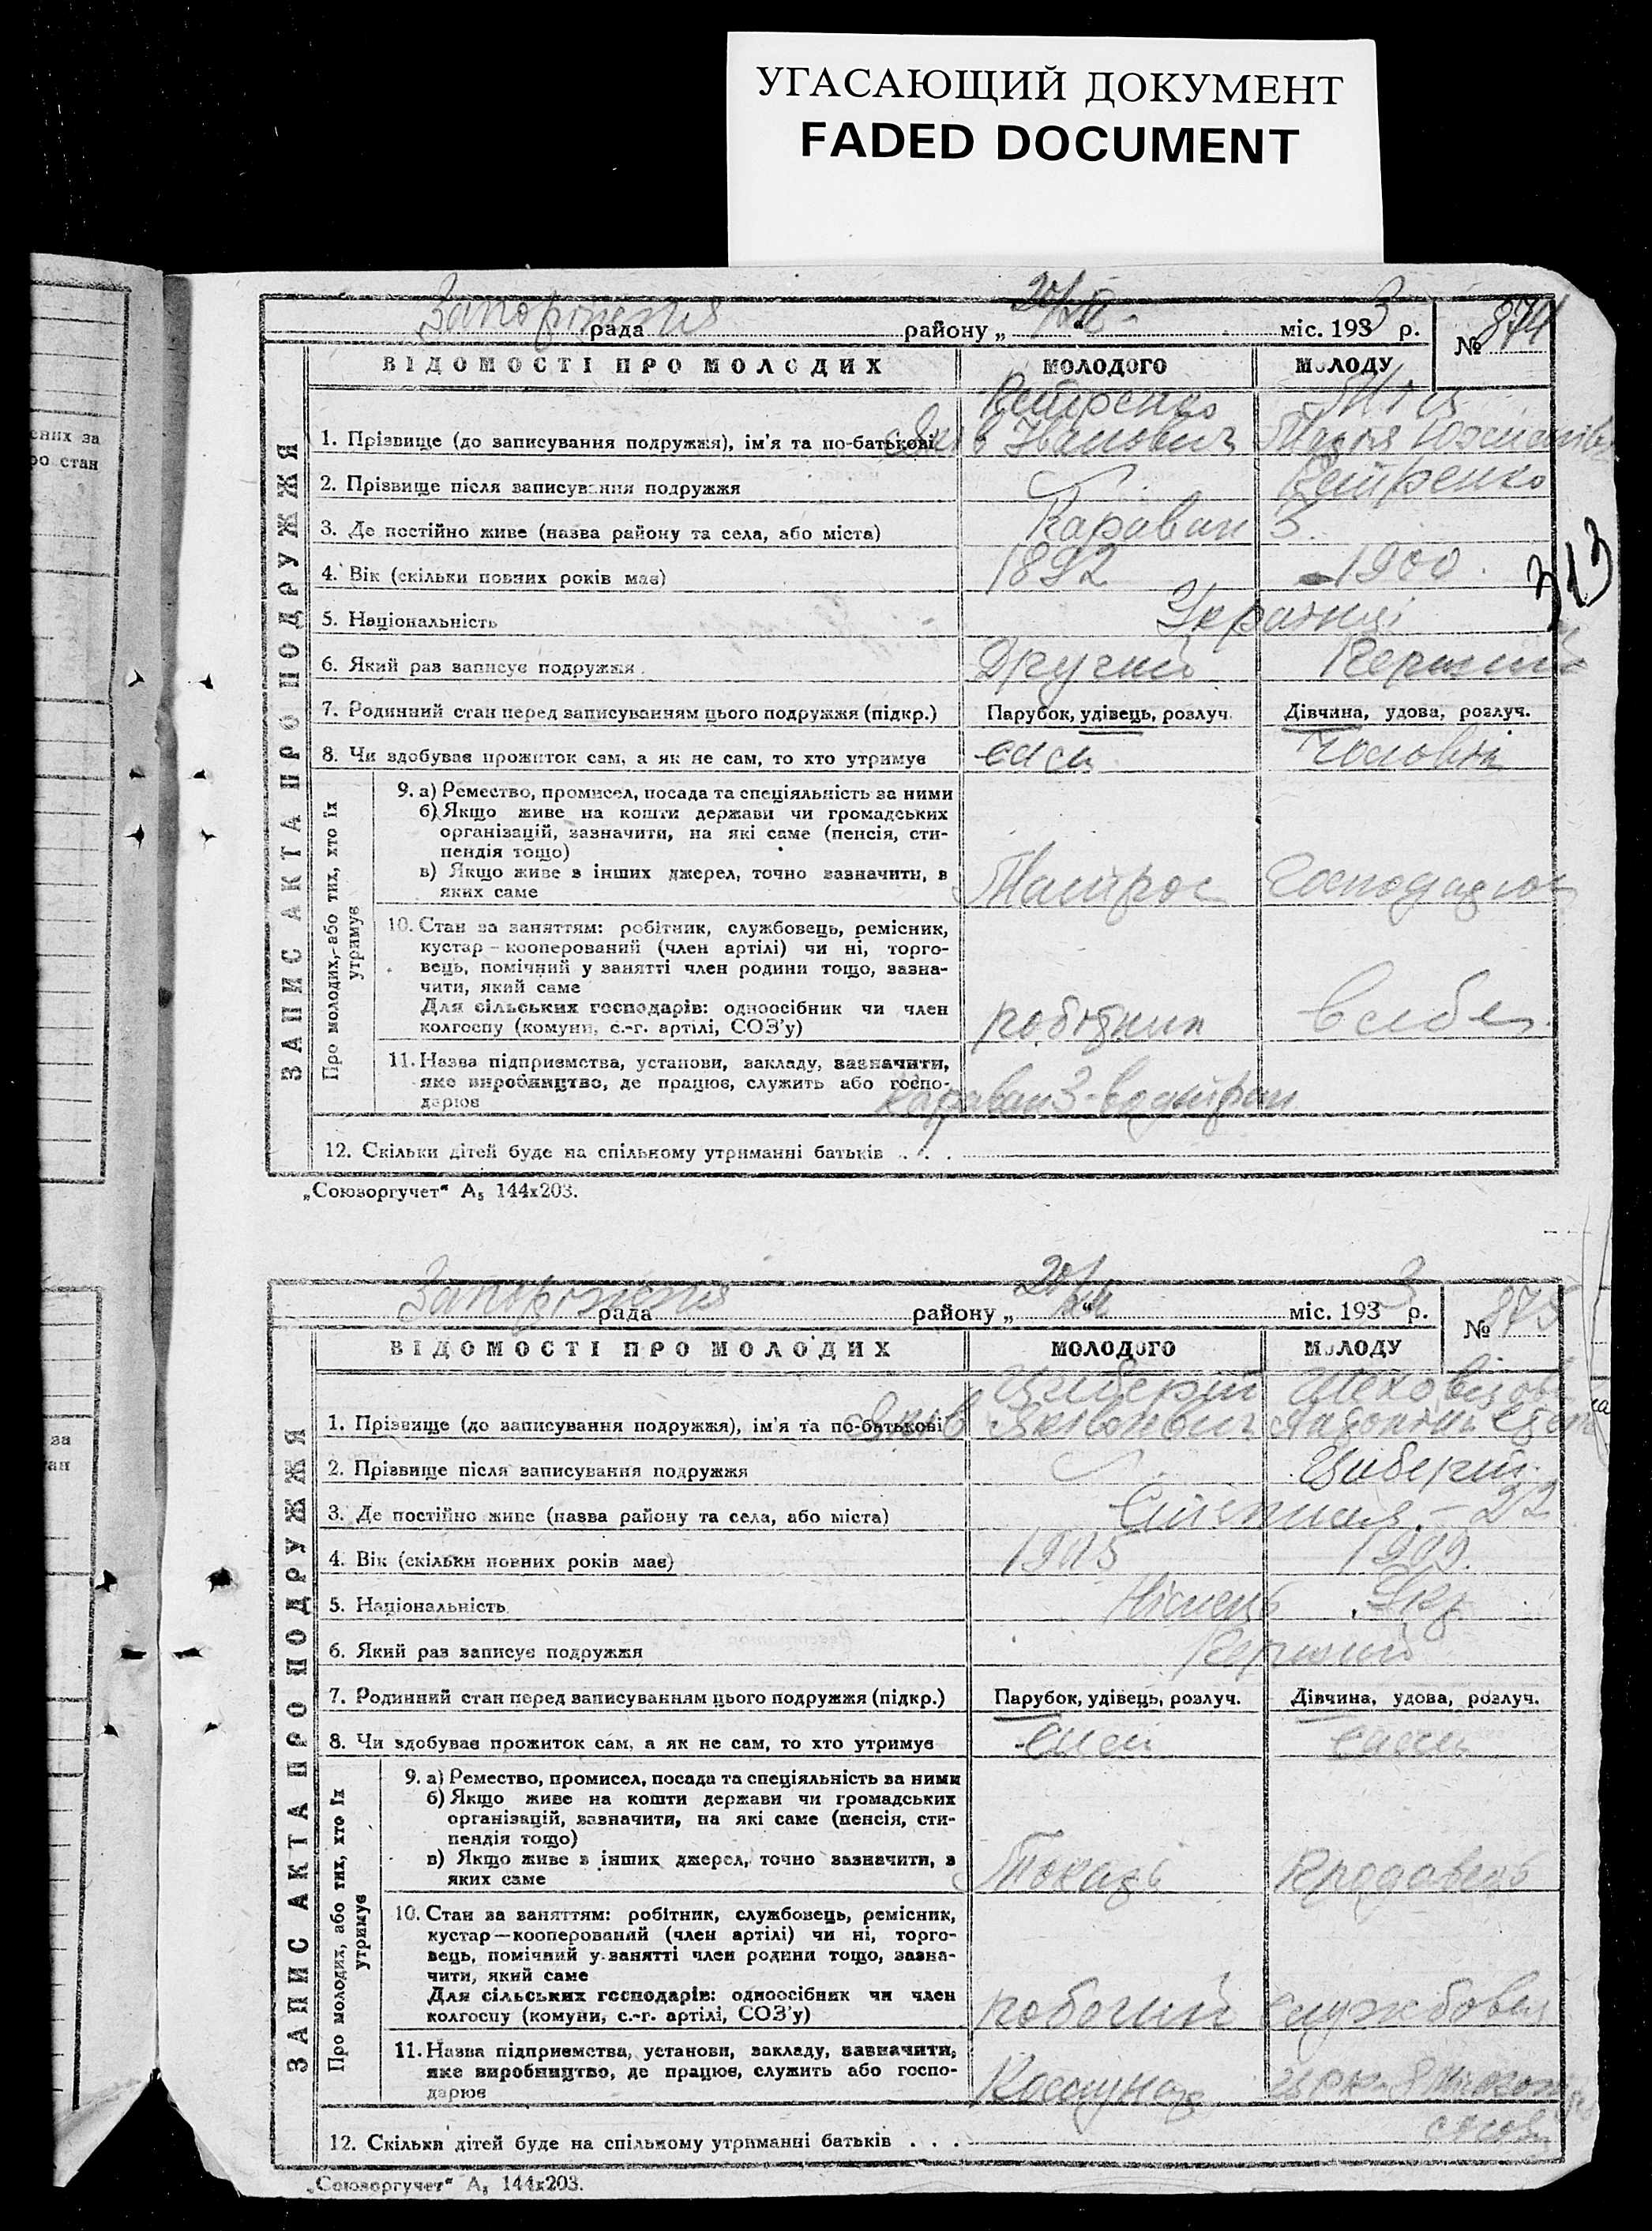 УГАСАЮЩИЙ ДОКУМЕНТ
FADED DOCUMENT
рада району „ 20/XII “ міс. 1933 р. № 874
ВІДОМОСТІ ПРО МОЛОДИХ МОЛОДОГО МОЛОДУ
Петренко
1. Прізвище (до записування подружжя), ім’я та по-батькові Яків Іванович
2. Прізвище після записування подружжя Петренко
3. Де постійно живе (назва району та села, або міста) Караван 3.
4. Вік (скільки повних років має) 1892 1900.
5. Національність Українці
6. Який раз записує подружжя Другий Перший
7. Родинний стан перед записуванням цього подружжя (підкр.) Парубок, удівець, розлуч. Дівчина, удова, розлуч.
8. Чи здобуває прожиток сам, а як не сам, то хто утримує сам чоловік
9. а) Ремество, промисел, посада та спеціяльність за ними
б) Якщо живе на кошти держави чи громадських
організацій, зазначити, на які саме (пенсія, сти-
пендія тощо)
в) Якщо живе з інших джерел, точно зазначити, з
яких саме Матрос
10. Стан за заняттям: робітник, службовець, ремісник,
кустар — кооперований (член артілі) чи ні, торго-
вець, помічний у занятті член родини тощо, зазна-
чити, який саме
Для сільських господарів: одноосібник чи член
колгоспу (комуни, с.-г. артілі, СОЗ’у) робітник
11. Назва підприємства, установи, закладу, зазначити,
яке виробництво, де працює, служить або госпо-
дарює Караван 3-
12. Скільки дітей буде на спільному утриманні батьків . . .
ЗАПИС АКТА ПРО ПОДРУЖЖЯ
Про молодих, або тих, хто їх
утримує
„Союзоргучет“ А₅ 144х203.
313
рада району „ 20/XII “ міс. 1933 р. № 875
ВІДОМОСТІ ПРО МОЛОДИХ МОЛОДОГО МОЛОДУ
1. Прізвище (до записування подружжя), ім’я та по-батькові Яків Яківович
2. Прізвище після записування подружжя
3. Де постійно живе (назва району та села, або міста) 22
4. Вік (скільки повних років має) 1905 1909.
5. Національність Німець Укр
6. Який раз записує подружжя Перший
7. Родинний стан перед записуванням цього подружжя (підкр.) Парубок, удівець, розлуч. Дівчина, удова, розлуч.
8. Чи здобуває прожиток сам, а як не сам, то хто утримує сам сама
9. а) Ремество, промисел, посада та спеціяльність за ними
б) Якщо живе на кошти держави чи громадських
організацій, зазначити, на які саме (пенсія, сти-
пендія тощо)
в) Якщо живе з інших джерел, точно зазначити, з
яких саме Токарь Продавець
10. Стан за заняттям: робітник, службовець, ремісник,
кустар — кооперований (член артілі) чи ні, торго-
вець, помічний у занятті член родини тощо, зазна-
чити, який саме
Для сільських господарів: одноосібник чи член
колгоспу (комуни, с.-г. артілі, СОЗ’у) робочий
11. Назва підприємства, установи, закладу, зазначити,
яке виробництво, де працює, служить або госпо-
дарює Комунар
12. Скільки дітей буде на спільному утриманні батьків . . .
ЗАПИС АКТА ПРО ПОДРУЖЖЯ
Про молодих, або тих, хто їх
утримує
„Союзоргучет“ А₅ 144х203.